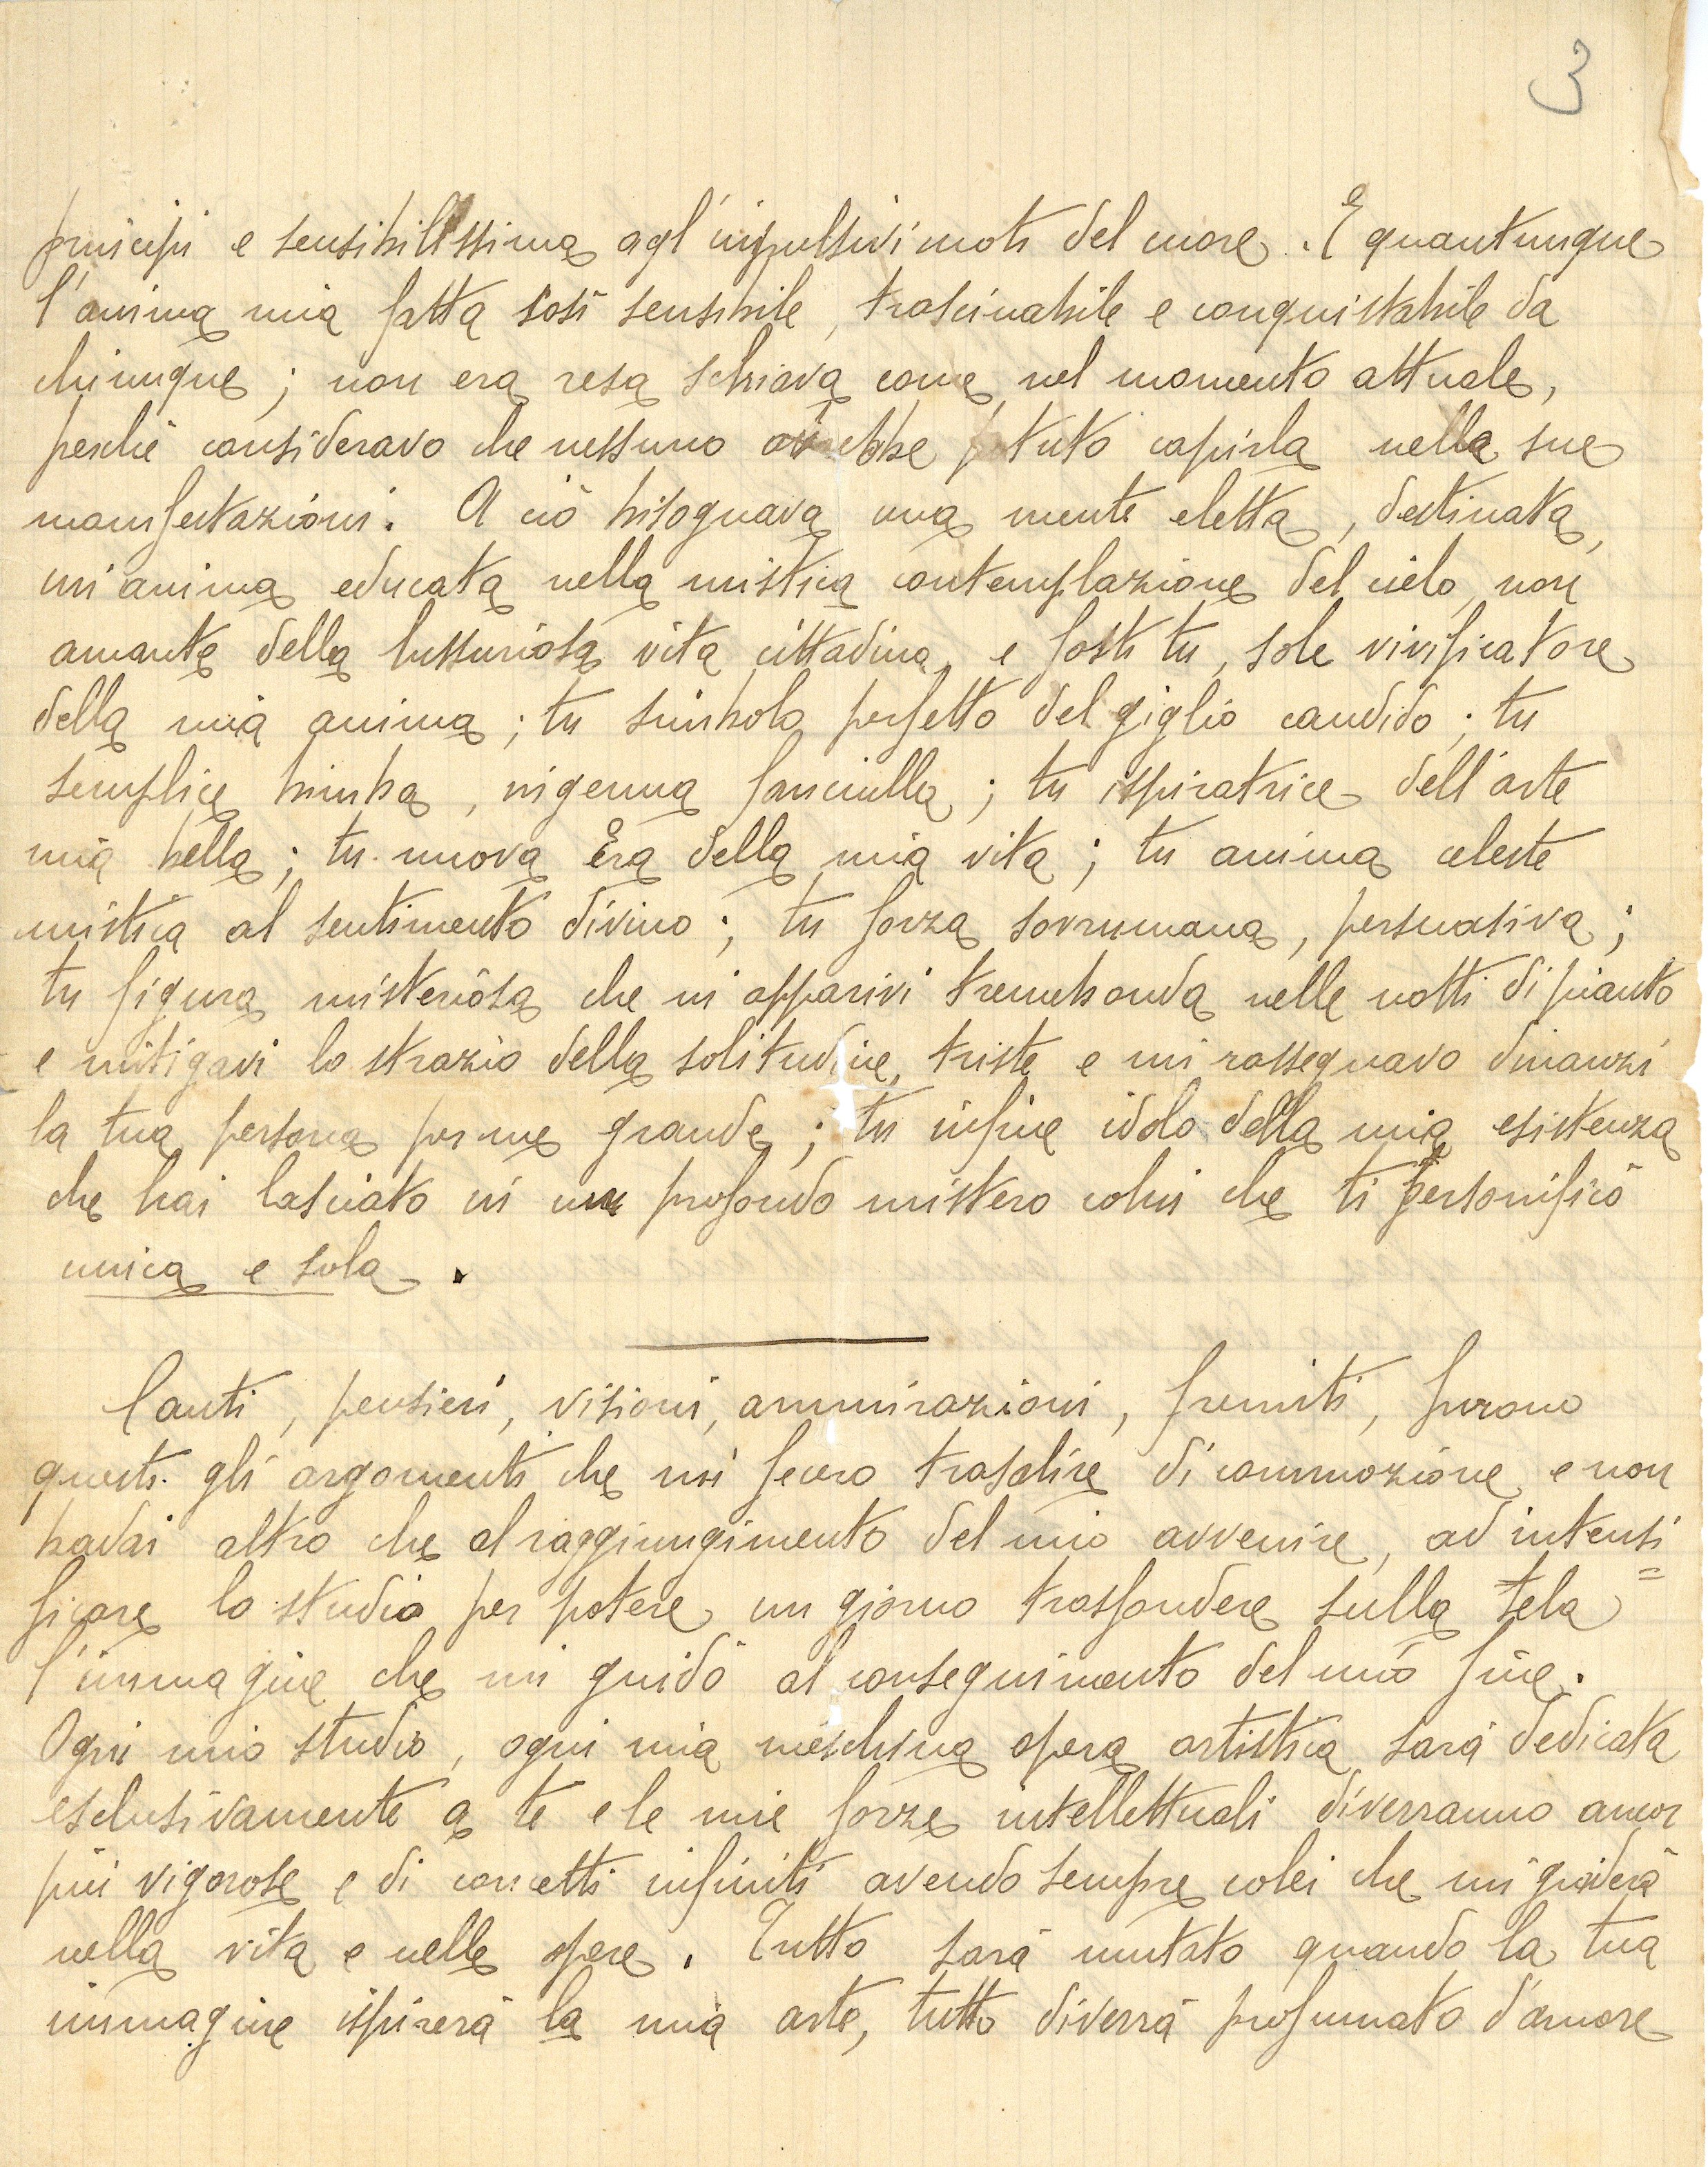 3
principi e sensibilissima agl'impulsivi moti del cuore. E quantunque
l'anima mia fatta così sensibile, trascinabile e conquistabile da
chiunque; non era resa schiava come nel momento attuale,
perchè consideravo che nessuno avrebbe potuto capirla nelle sue
manifestazioni. A ciò bisognava una mente eletta, destinata,
un'anima educata nella mistica contemplazione del cielo, non
amante della lussuriosa vita cittadina, e fosti tu, sole vivificatore
della mia anima; tu simbolo perfetto del giglio candido; tu
semplice bimba, ingenua fanciulla; tu ispiratrice dell'arte
mia bella; tu nuova Era della mia vita; tu anima celeste
mistica al sentimento divino; tu forza sovrumana, persuasiva;
tu figura misteriosa che m'apparivi tremebonda nelle notti di pianto
e mitigavi lo strazio della solitudine triste e mi rassegnavo dinanzi
la tua persona per me grande; tu infine idolo della mia esistenza
che hai lasciato in un profondo mistero colui che ti personificò
unica e sola.
Canti, pensieri, visioni, ammirazioni, fremiti, furono
questi gli argomenti che mi fecero trasalire di commozione e non
badai altro che al raggiungimento del mio avvenire, ad intensi=
ficare lo studio per potere un giorno trasfondere sulla tela
l'immagine che mi guidò al conseguimento del mio fine.
Ogni mio studio, ogni mia meschina opera artistica sarà dedicata
esclusivamente a te e le mie forze intellettuali diverranno ancor
più vigorose e di concetti infiniti avendo sempre colei che mi guiderà
nella vita e nelle opere. Tutto sarà mutato quando la tua
immagine ispirerà la mia arte, tutto diverrà profumato d'amore